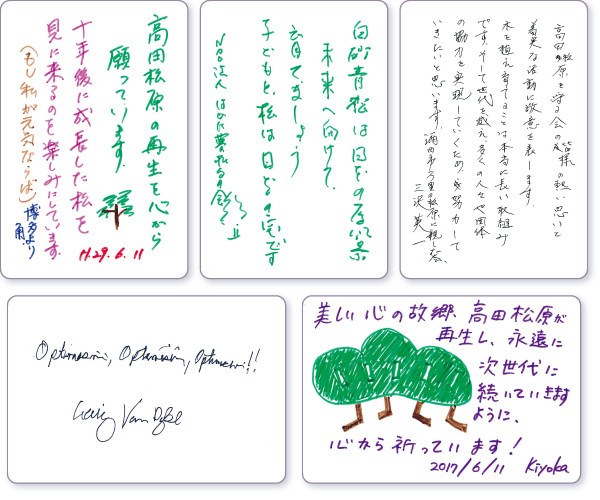 高田松原の再生を心から
願っています。
十年後に成長した松を
見に来るのを楽しみにしています。
(もし私が元気ならば)
博多より
角
H.29.6.11
白砂青松は日本の原風景
未来へ向けて、
育てましょう
子どもと、松は日本の宝です
NPO法人
高田松原を守る会の皆様の熱い思いと
着実な活動に敬意を表します。
木を植え育てることは本当に長い取組み
です。そして世代を越え多くの人々や団体
の協力を実現していくため、努力して
いきたいと思います。
三沢英一
Optimism, Optimism, Optimism!!
Craig Van Dyke
美しい心の故郷、高田松原が
再生し、永遠に
次世代に
続いていきます
ように、
心から祈っています!
2017/6/11 Kiyoka